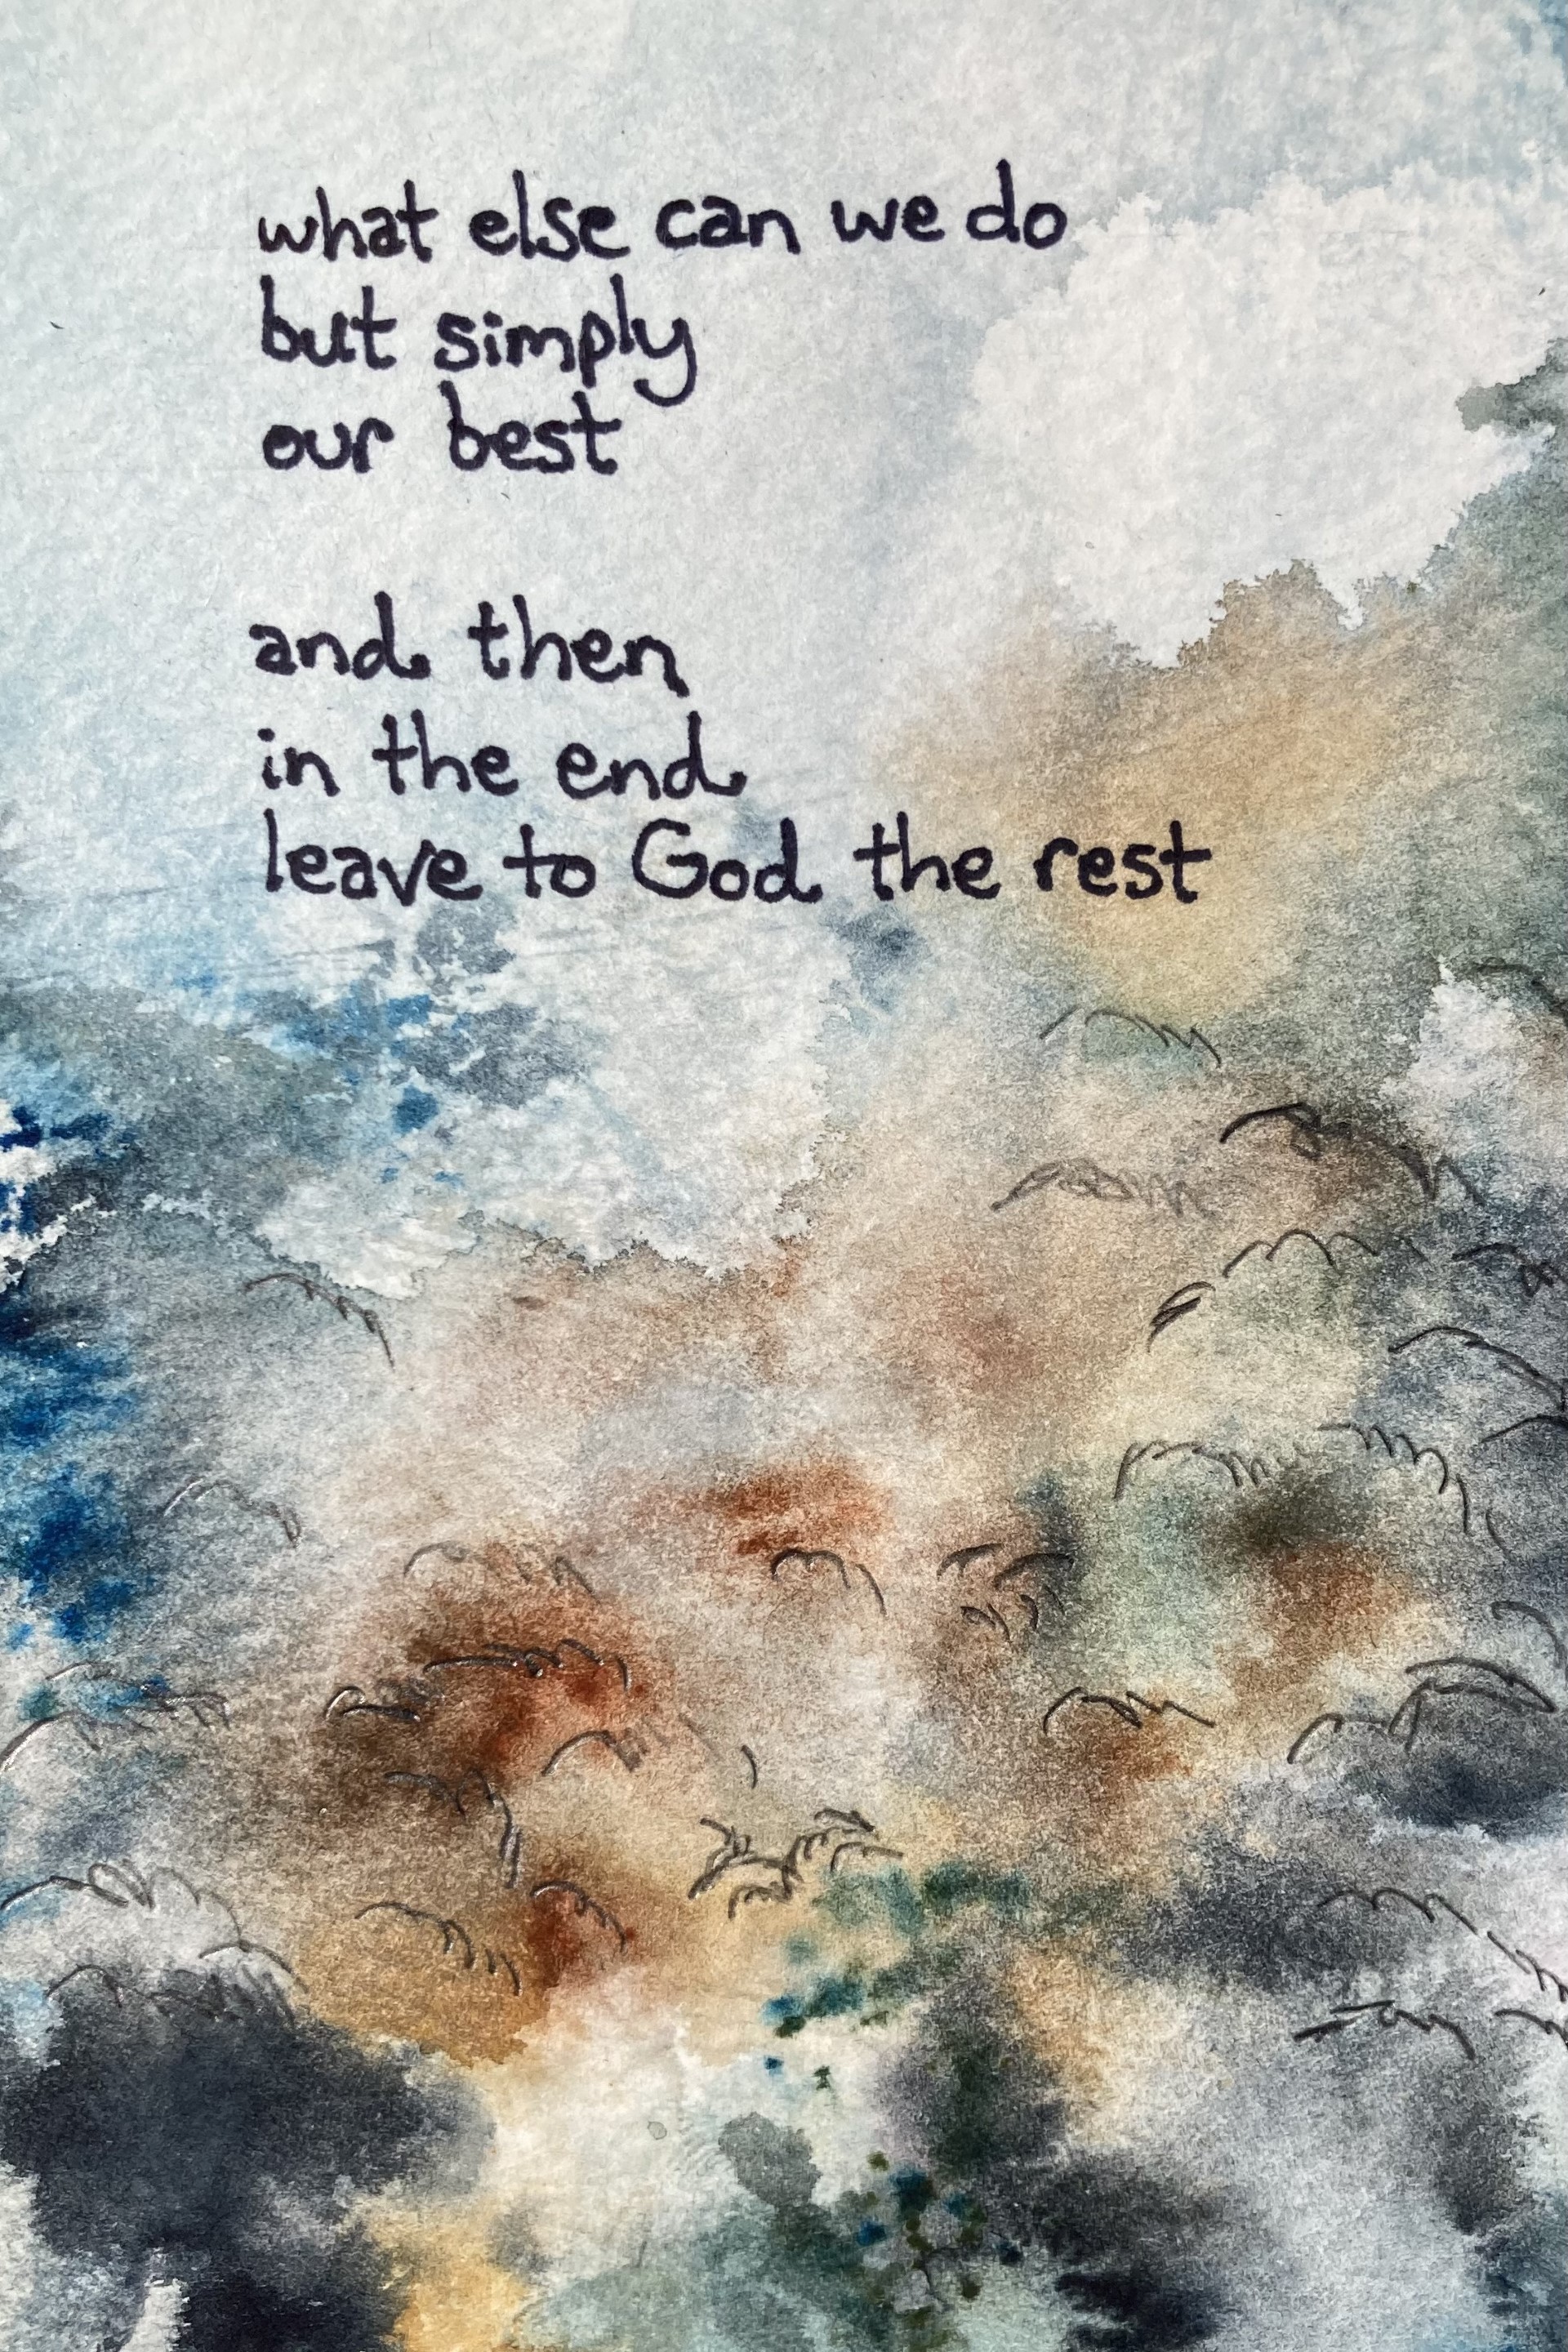 what else can we do
but simply
our best
and then
in the end
leave to God the rest